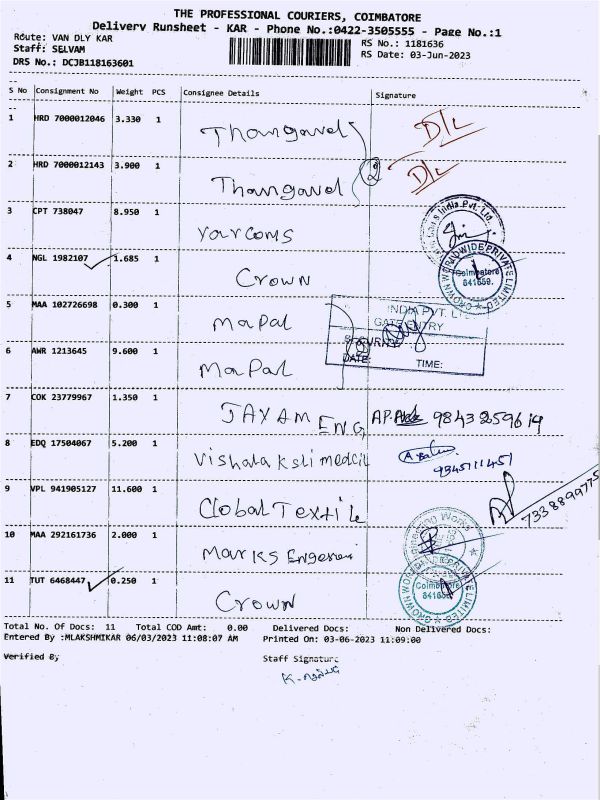 THE PROFESSIONAL COURIERS, COIMBATORE
Delivery Runsheet - KAR - Phone No.:0422-3505555 - Page No.:1
Route: VAN DLY KAR
Staff: SELVAM
DRS No.: DCJB118163601
RS No.: 1181636
RS Date: 03-Jun-2023
S No Consignment No Weight PCS Consignee Details Signature
1 HRD 7000012046 3.330 1 Thangavel D/L
2 HRD 7000012143 3.900 1 Thangavel 2 D/L
3 CPT 738047 8.950 1 India Pvt. Ltd.
4 NGL 1982107 1.685 1 Crown
CROWN WORLDWIDE PRIVATE LIMITED
Coimbatore
641659.
5 MAA 102726698 0.300 1 Mapal
INDIA PVT. LTD
GATE ENTRY
SECURITY
DATE: TIME:
6 AWR 1213645 9.600 1 Mapal
7 COK 23779967 1.350 1 JAYAM ENG 98432 59614
8 EDQ 17504067 5.200 1 9345111451
9 VPL 941905127 11.600 1 Global Textile 7338899775
10 MAA 292161736 2.000 1 Marks
Engineering Works
11 TUT 6468447 0.250 1 Crown
CROWN WORLDWIDE PRIVATE LIMITED
Coimbatore
641659
Total No. Of Docs: 11 Total COD Amt: 0.00 Delivered Docs: Non Delivered Docs:
Entered By :MLAKSHMIKAR 06/03/2023 11:08:07 AM Printed On: 03-06-2023 11:09:00
Verified By Staff Signature